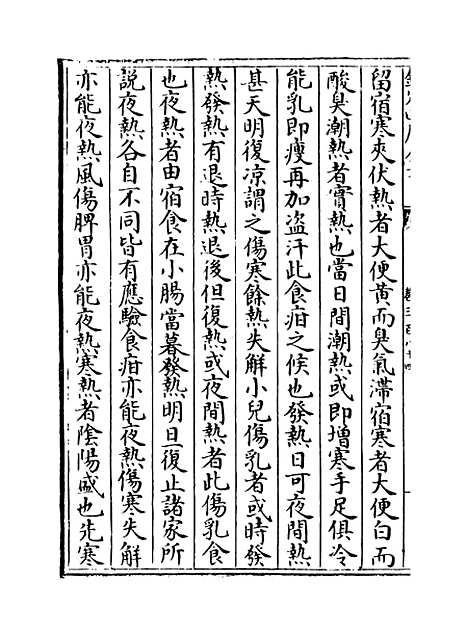 留宿寒夾伏熱者大便黄而臭氣滯宿寒者大便白而
酸臭潮熱者實熱也當日間潮熱或即增寒手足俱冷
能乳即瘦再加盗汗此食疳之候也發熱日可夜間熱
甚天明復凉謂之傷寒餘熱失解小兒傷乳者或時發
熱發熱有退時熱退後但復熱或夜間熱者此傷乳食
也夜熱者由宿食在小腸當暮發熱明旦復止諸家所
說夜熱各自不同皆有應驗食疳亦能夜熱傷寒失解
亦能夜熱風傷脾胃亦能夜熱寒熱者陰陽盛也先寒